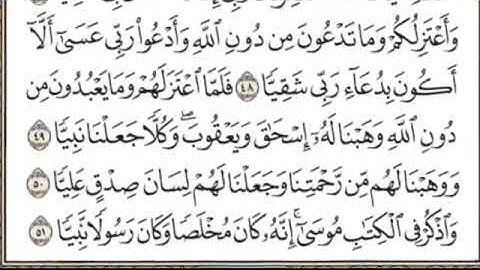 وَأَعْتَزِلُكُمْ وَمَا تَدْعُونَ مِن دُونِ ٱللَّهِ وَأَدْعُوا۟ رَبِّى عَسَىٰٓ أَلَّآ
أَكُونَ بِدُعَآءِ رَبِّى شَقِيًّا ٤٨ فَلَمَّا ٱعْتَزَلَهُمْ وَمَا يَعْبُدُونَ مِن
دُونِ ٱللَّهِ وَهَبْنَا لَهُۥٓ إِسْحَٰقَ وَيَعْقُوبَ ۖ وَكُلًّا جَعَلْنَا نَبِيًّا ٤٩
وَوَهَبْنَا لَهُم مِّن رَّحْمَتِنَا وَجَعَلْنَا لَهُمْ لِسَانَ صِدْقٍ عَلِيًّا ٥٠
وَٱذْكُرْ فِى ٱلْكِتَٰبِ مُوسَىٰٓ ۚ إِنَّهُۥ كَانَ مُخْلَصًا وَكَانَ رَسُولًا نَّبِيًّا ٥١